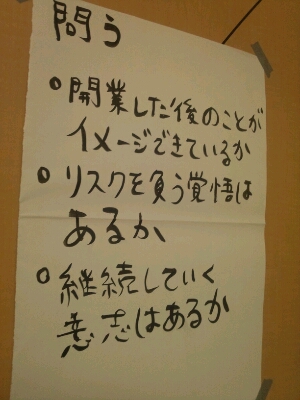 問う
• 開業した後のことが
イメージできているか
• リスクを負う覚悟は
あるか
• 継続していく
意志はあるか